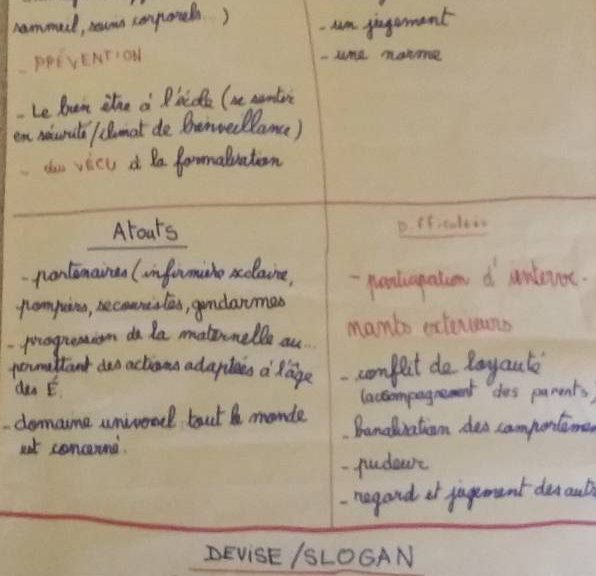 sommeil, soins corporels...)
- PRÉVENTION
- Le bien être à l'école (se sentir
en sécurité/climat de bienveillance)
- du VÉCU à la formalisation
- un jugement
- une norme
Atouts
- partenaires (infirmière scolaire,
pompiers, secouristes, gendarmes
- progression de la maternelle au...
permettant des actions adaptées à l'âge
des É.
- domaine universel tout le monde
est concerné.
Difficultés
- participation d'interve-
nants extérieurs
- conflit de loyauté
(accompagnement des parents)
- banalisation des comporteme
- pudeur
- regard et jugement des aut
DEVISE/SLOGAN